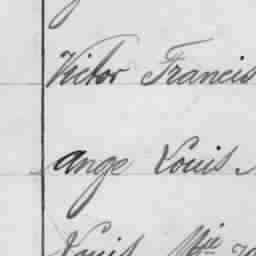 Victor Francis
ange Louis
Louis Mie